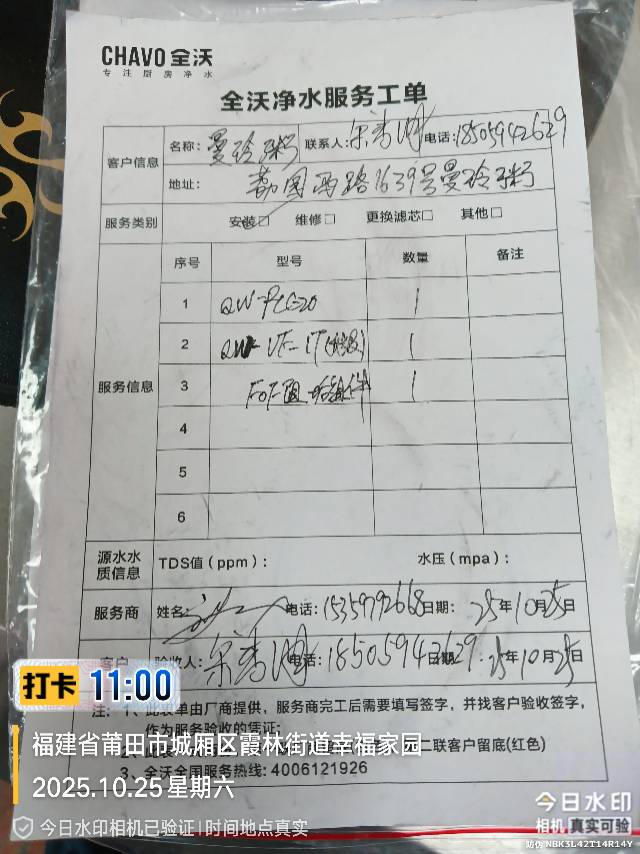 CHAVO 全沃
专注厨房净水
全沃净水服务工单
客户信息
名称: 曼玲粥 联系人: 电话: 1805942629
地址: 荔园西路1639号曼玲粥
服务类别 安装☑ 维修□ 更换滤芯□ 其他□
服务信息
序号 型号 数量 备注
1 1
2 QW-UF-1T 1
3 1
4
5
6
源水水质信息 TDS值（ppm）: 水压（mpa）:
服务商 姓名: 电话: 15359792668 日期: 25年10月25日
客户 验收人: 电话: 18059942629 25年10月25日
注: 1、此表单由厂商提供，服务商完工后需要填写签字，并找客户验收签字，
作为服务验收的凭证;
2、 二联客户留底(红色)
3、全沃全国服务热线: 4006121926
打卡 11:00
福建省莆田市城厢区霞林街道幸福家园
2025.10.25 星期六
今日水印相机已验证 | 时间地点真实
今日水印
相机 真实可验
防伪 NBK3L42T14R14Y